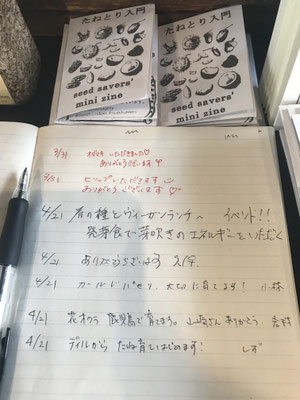 たねとり入門
seed savers'
mini zine
たねとり入門
seed savers'
mini zine
3/31 いただきました♡
ありがとうございます
3/31 いただきます
ありがとうございます♡
4/21 春の種とヴィーガンランチへ イベント!!
発芽食で芽吹きのエネルギーをいただく
4/21 ありがとうございます
4/21 カールドパセリ、大切に育てます! 小林
4/21 花オクラ 鹿児島で育てます。山崎さんありがとう 吉村
4/21 ディルから たね育てはじめます! しず